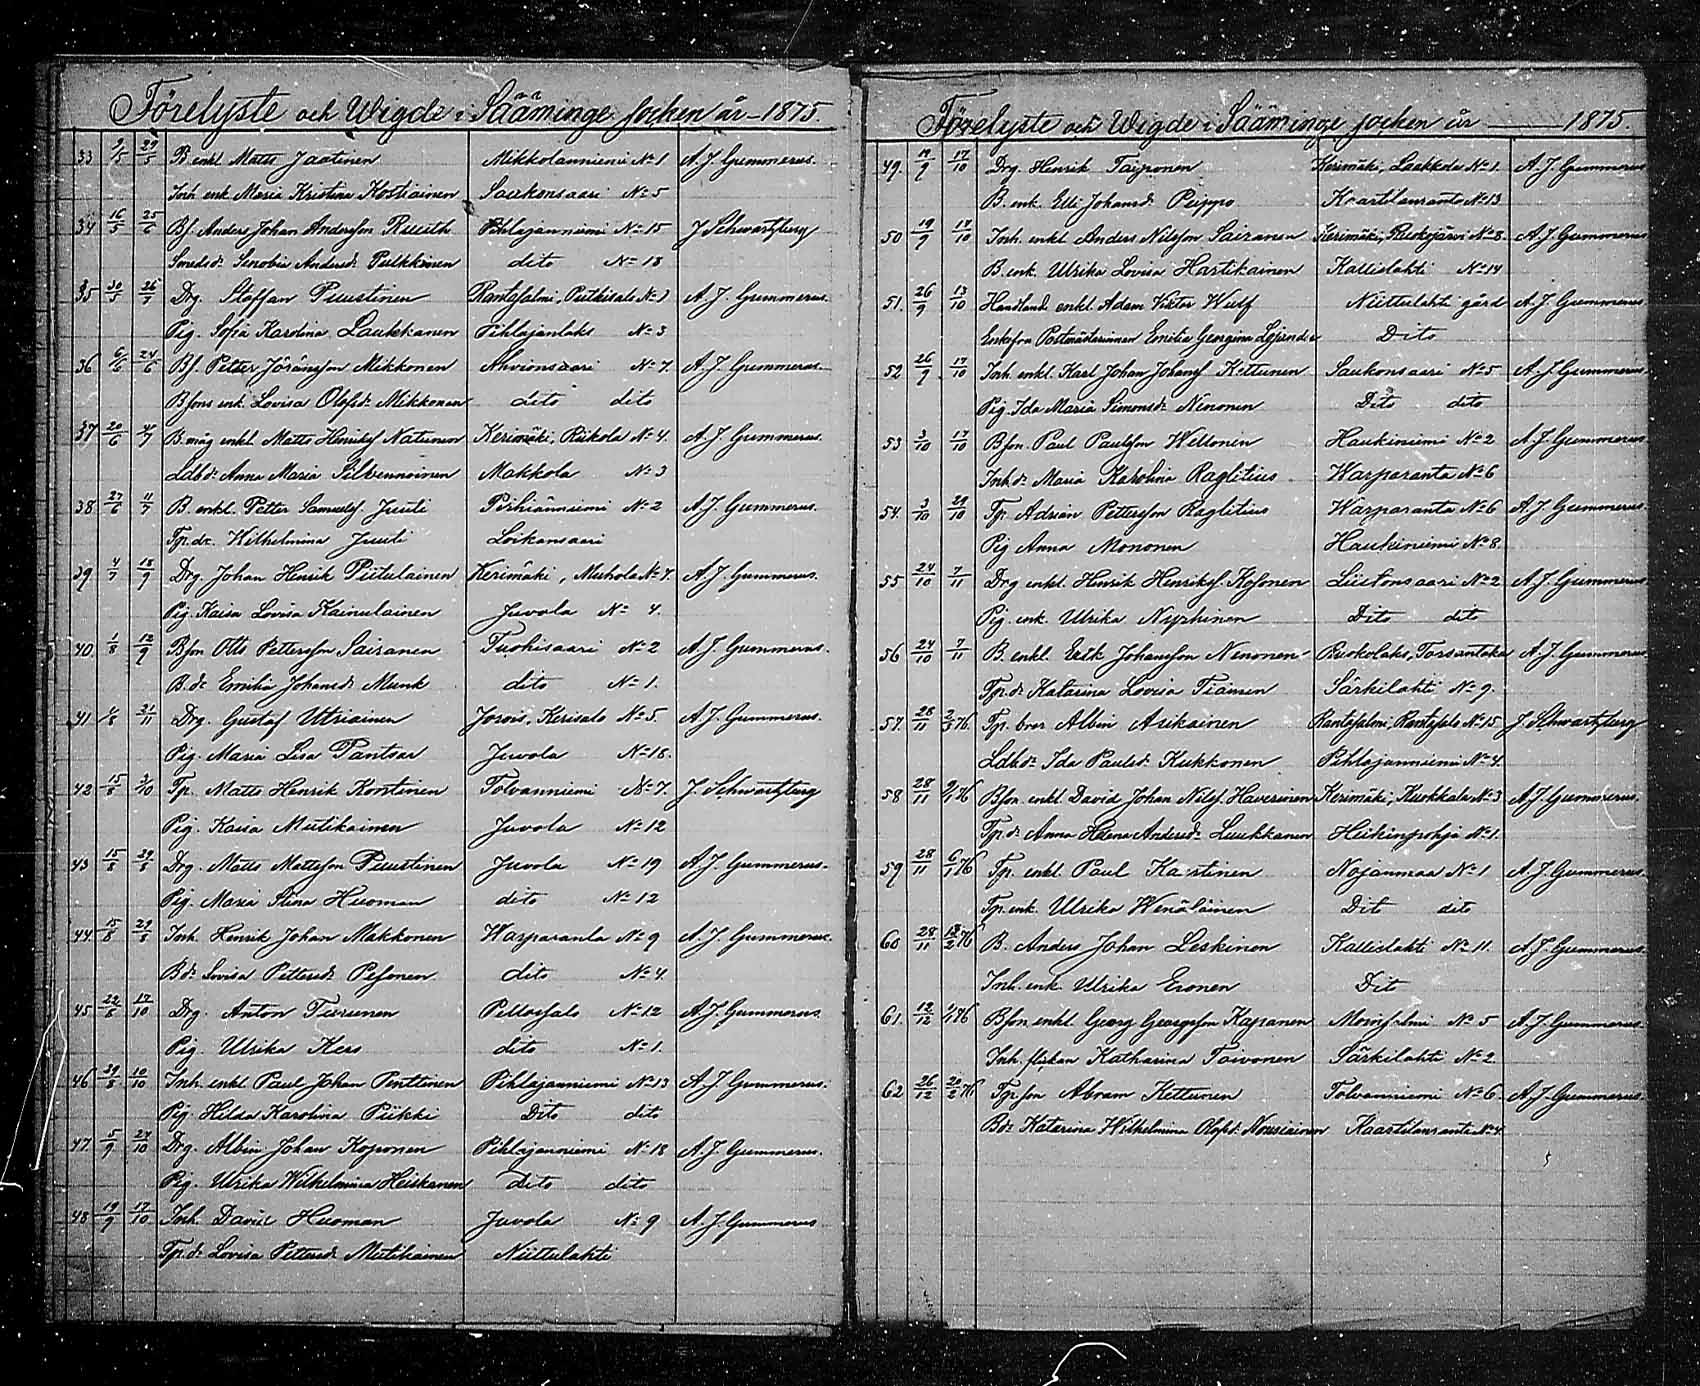 Förelyste och Wigde i Sääminge Socken år 1875.
33 9/5 29/5 B. enkl. Matts Jaatinen Mikkolanniemi No 1 A. J. Gummerus.
Inh. enk. Maria Kristina Kostiainen Saukonsaari No 5
34 16/5 25/6 Bf. Anders Johan Andersson Ruuth Pihlajanniemi No 15 J Schwartzberg
Smedsdr. Senobia Andersdr. Pulkkinen dito No 18
35 30/5 26/7 Drg. Staffan Puustinen Rantasalmi, Putkisalo No 1 A. J. Gummerus.
Pig. Sofia Karolina Laukkanen Pihlajanlaks No 3
36 6/6 24/6 Bf. Petter Jöransson Mikkonen Ahvionsaari No 7. A. J. Gummerus.
Bfsons enk. Lovisa Olofsdr. Mikkonen dito dito
37 20/6 4/7 B. måg enkl. Matts Henriksf. Natunen Kerimäki, Riikola No 4. A. J. Gummerus.
Ldbdr. Anna Maria Silvennoinen Makkola No 3
38 27/6 11/7 B. enkl. Petter Samuelsf. Juuti Pirhiänniemi No 2 A. J. Gummerus.
Tp. dr. Wilhelmina Juuti Loikansaari
39 4/7 18/9 Drg. Johan Henrik Piitulainen Kerimäki, Muhola No 7. A. J. Gummerus.
Pig. Kaisa Lovisa Kainulainen Juvola No 4.
40. 1/8 12/9 Bson Otto Pettersson Sairanen Tuohisaari No 2 A. J. Gummerus.
B. dr. Emilia Johansdr. Munk dito No 1.
41 /8 21/11 Drg. Gustaf Utriainen Jorois, Kerisalo No 5. A. J. Gummerus.
Pig. Maria Lisa Pantsar Juvola No 18.
42 15/8 3/10 Tp. Matts Henrik Kontinen Tolvanniemi No 7. J. Schwartzberg
Pig. Kaisa Mutikainen Juvola No 12
43 15/8 29/8 Drg. Matts Mattsson Puustinen Juvola No 19 A. J. Gummerus.
Pig. Maria Stina Huoman dito No 12
44 15/8 29/8 Inh. Henrik Johan Makkonen Warparanta No 9 A. J. Gummerus.
Bdr. Lovisa Pettersdr. Pesonen dito No 4.
45 22/8 17/10 Drg. Anton Turunen Pellossalo No 12 A. J. Gummerus.
Pig. Ulrika Kers dito No 1.
46 29/8 10/10 Inh. enkl. Paul Johan Penttinen Pihlajanniemi No 13 A. J. Gummerus.
Pig. Hilda Karolina Piikki Dito dito
47. 5/9 24/10 Drg. Albin Johan Koponen Pihlajanniemi No 18 A. J. Gummerus.
Pig. Ulrika Wilhelmina Heiskanen Dito dito
48 19/9 17/10 Inh. David Huoman Juvola No 9 A. J. Gummerus
Tp. dr. Lovisa Pettersdr. Mutikainen Niittulahti
Förelyste och Wigde i Sääminge socken år 1875.
49. 19/9 17/10 Drg. Henrik Taiponen Kerimäki, Laukkala No 1. A. J. Gummerus
B. enk. Elli Johansdr. Peippo Kaartilanranta No 13
50 19/9 17/10 Inh. enkl. Anders Nilsson Sairanen Kerimäki, Ruokojärvi No 8. A. J. Gummerus
B. enk. Ulrika Lovisa Hartikainen Kallislahti No 14
51. 26/9 13/10 Handland. enkl. Adam Victor Wulf Niittulahti gård A. J. Gummerus
Enkefru Postmästarinnan Emilia Georgina Dito
52 26/9 17/10 Inh. enkl. Karl Johan Johansf Kettunen Saukonsaari No 5 A. J. Gummerus
Pig. Ida Maria Simonsdr. Nenonen Dito dito
53 3/10 17/10 Bson. Paul Paulsson Weltonen Haukiniemi No 2 A. J. Gummerus
Inhdr. Maria Karolina Raglitius Warparanta No 6
54. 3/10 29/10 Tp. Adrian Pettersson Raglitius Warparanta No 6 A. J. Gummerus
Pig Anna Mononen Haukiniemi No 8.
55 24/10 7/11 Drg enkl. Henrik Henriksf. Kosonen Liistonsaari No 2 A. J. Gummerus
Pig. enk. Ulrika Nyrhinen Dito dito
56 24/10 7/11 B. enkl. Erik Johansson Nenonen Ruokolaks, A. J. Gummerus.
Tp. dr. Katarina Lovisa Tiainen Särkilahti No 9.
57. 28/11 2/3 76. Tp. bror Albin Asikainen Rantasalmi, Rantasalo No 15 J. Schwartzberg
Ldbdr. Ida Paulsdr. Kukkonen Pihlajanniemi No 4.
58 28/11 2/1 76 Bson. enkl. David Johan Nilsf. Haverinen Kerimäki, Kuokkala No 3 A. J. Gummerus.
Tp. dr. Anna Helena Andersdr. Luukkanen Heikinpohja No 1.
59 28/11 6/1 76 Tp. enkl. Paul Kastinen Nojanmaa No 1 A. J. Gummerus.
Tp. enk. Ulrika Wenäläinen Dito dito
60 28/11 13/2 76 B. Anders Johan Leskinen Kallislahti No 11. A. J. Gummerus.
Inh. enk. Ulrika Eronen Dito
61. 12/12 76 Bson enkl. Georg Georgsson Kapanen Moinsalmi No 5 A. J. Gummerus.
Inh. flickan Katharina Toivonen Särkilahti No 2.
62 26/12 20/2 76 Tp. son Abram Kettunen Tolvanniemi No 6. A. J. Gummerus.
Bdr. Katarina Wilhelmina Olofsdr. Nousiainen Kaartilanranta No 4.